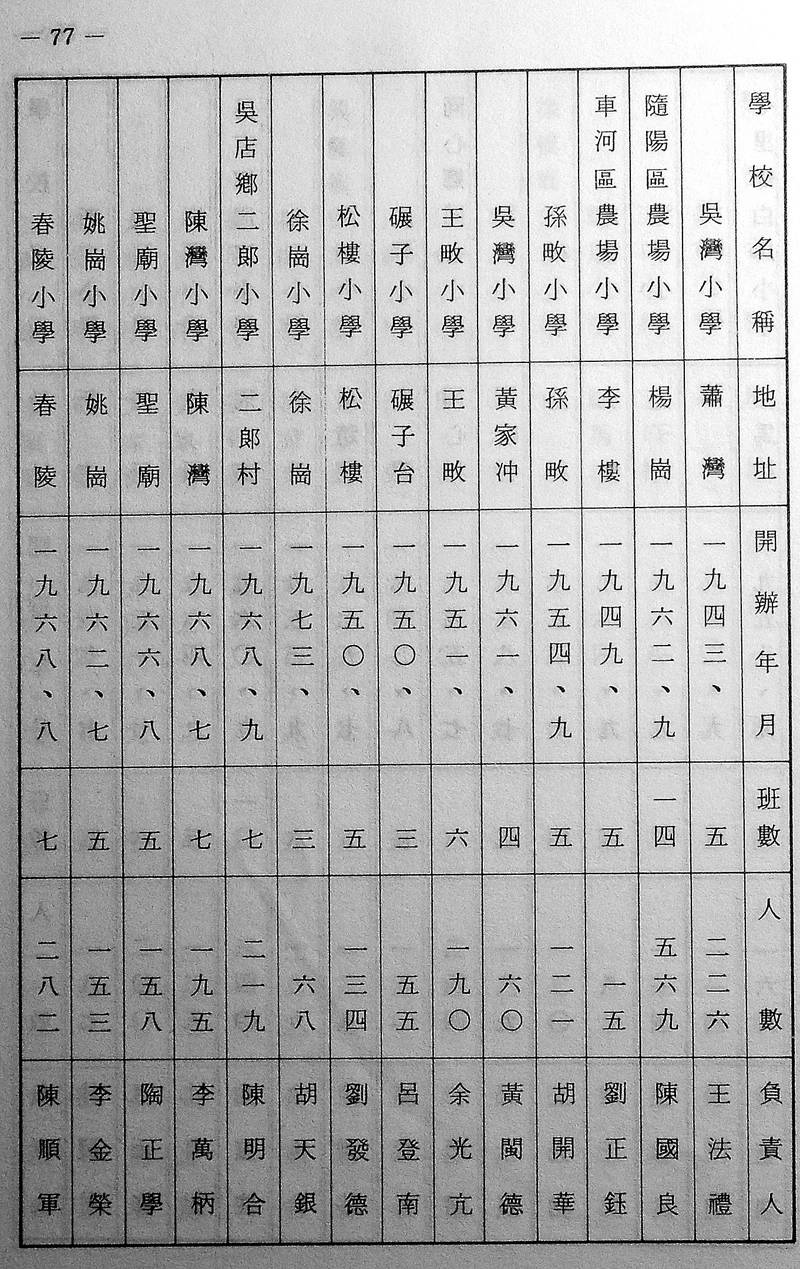 — 77 —
學校名稱 地址 開辦年月 班數 人數 負責人
吳灣小學 蕭灣 一九四三、 五 二二六 王法禮
隨陽區農場小學 楊崗 一九六二、九 一四 五六九 陳國良
車河區農場小學 李樓 一九四九、 五 一五 劉正鈺
孫畈小學 孫畈 一九五四、九 五 一二一 胡開華
吳灣小學 黃家冲 一九六一、 四 六〇 黃閩德
王畈小學 王畈 一九五一、 六 一九〇 余光亢
碾子小學 碾子台 一九五〇、 三 五五 呂登南
松樓小學 松樓 一九五〇、 五 一三四 劉發德
徐崗小學 徐崗 一九七三、 三 六八 胡天銀
吳店鄉二郎小學 二郎村 一九六八、九 七 二一九 陳明合
陳灣小學 陳灣 一九六八、七 七 一九五 李萬柄
聖廟小學 聖廟 一九六六、八 五 一五八 陶正學
姚崗小學 姚崗 一九六二、七 五 一五三 李金榮
春陵小學 春陵 一九六八、八 七 二八二 陳順軍